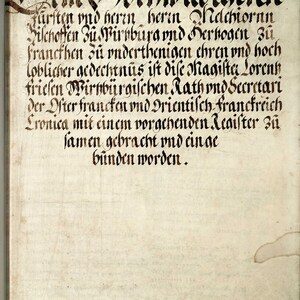 fürsten vnd herrn herrn Melchiornn
Bischoffen zu Wirtzburg vnd Hertzogen zu
Franckhen zu vnderthenigen ehren vnd hoch
loblicher gedechtnus ist dise Magister Lorentz
friesen Wirtzbürgischen Rath vnd Secretari
der Oster francken vnd Orientisch franckreich
Cronica mit einem vorgehenden Register zu
samen gebracht vnd einge
bunden worden.